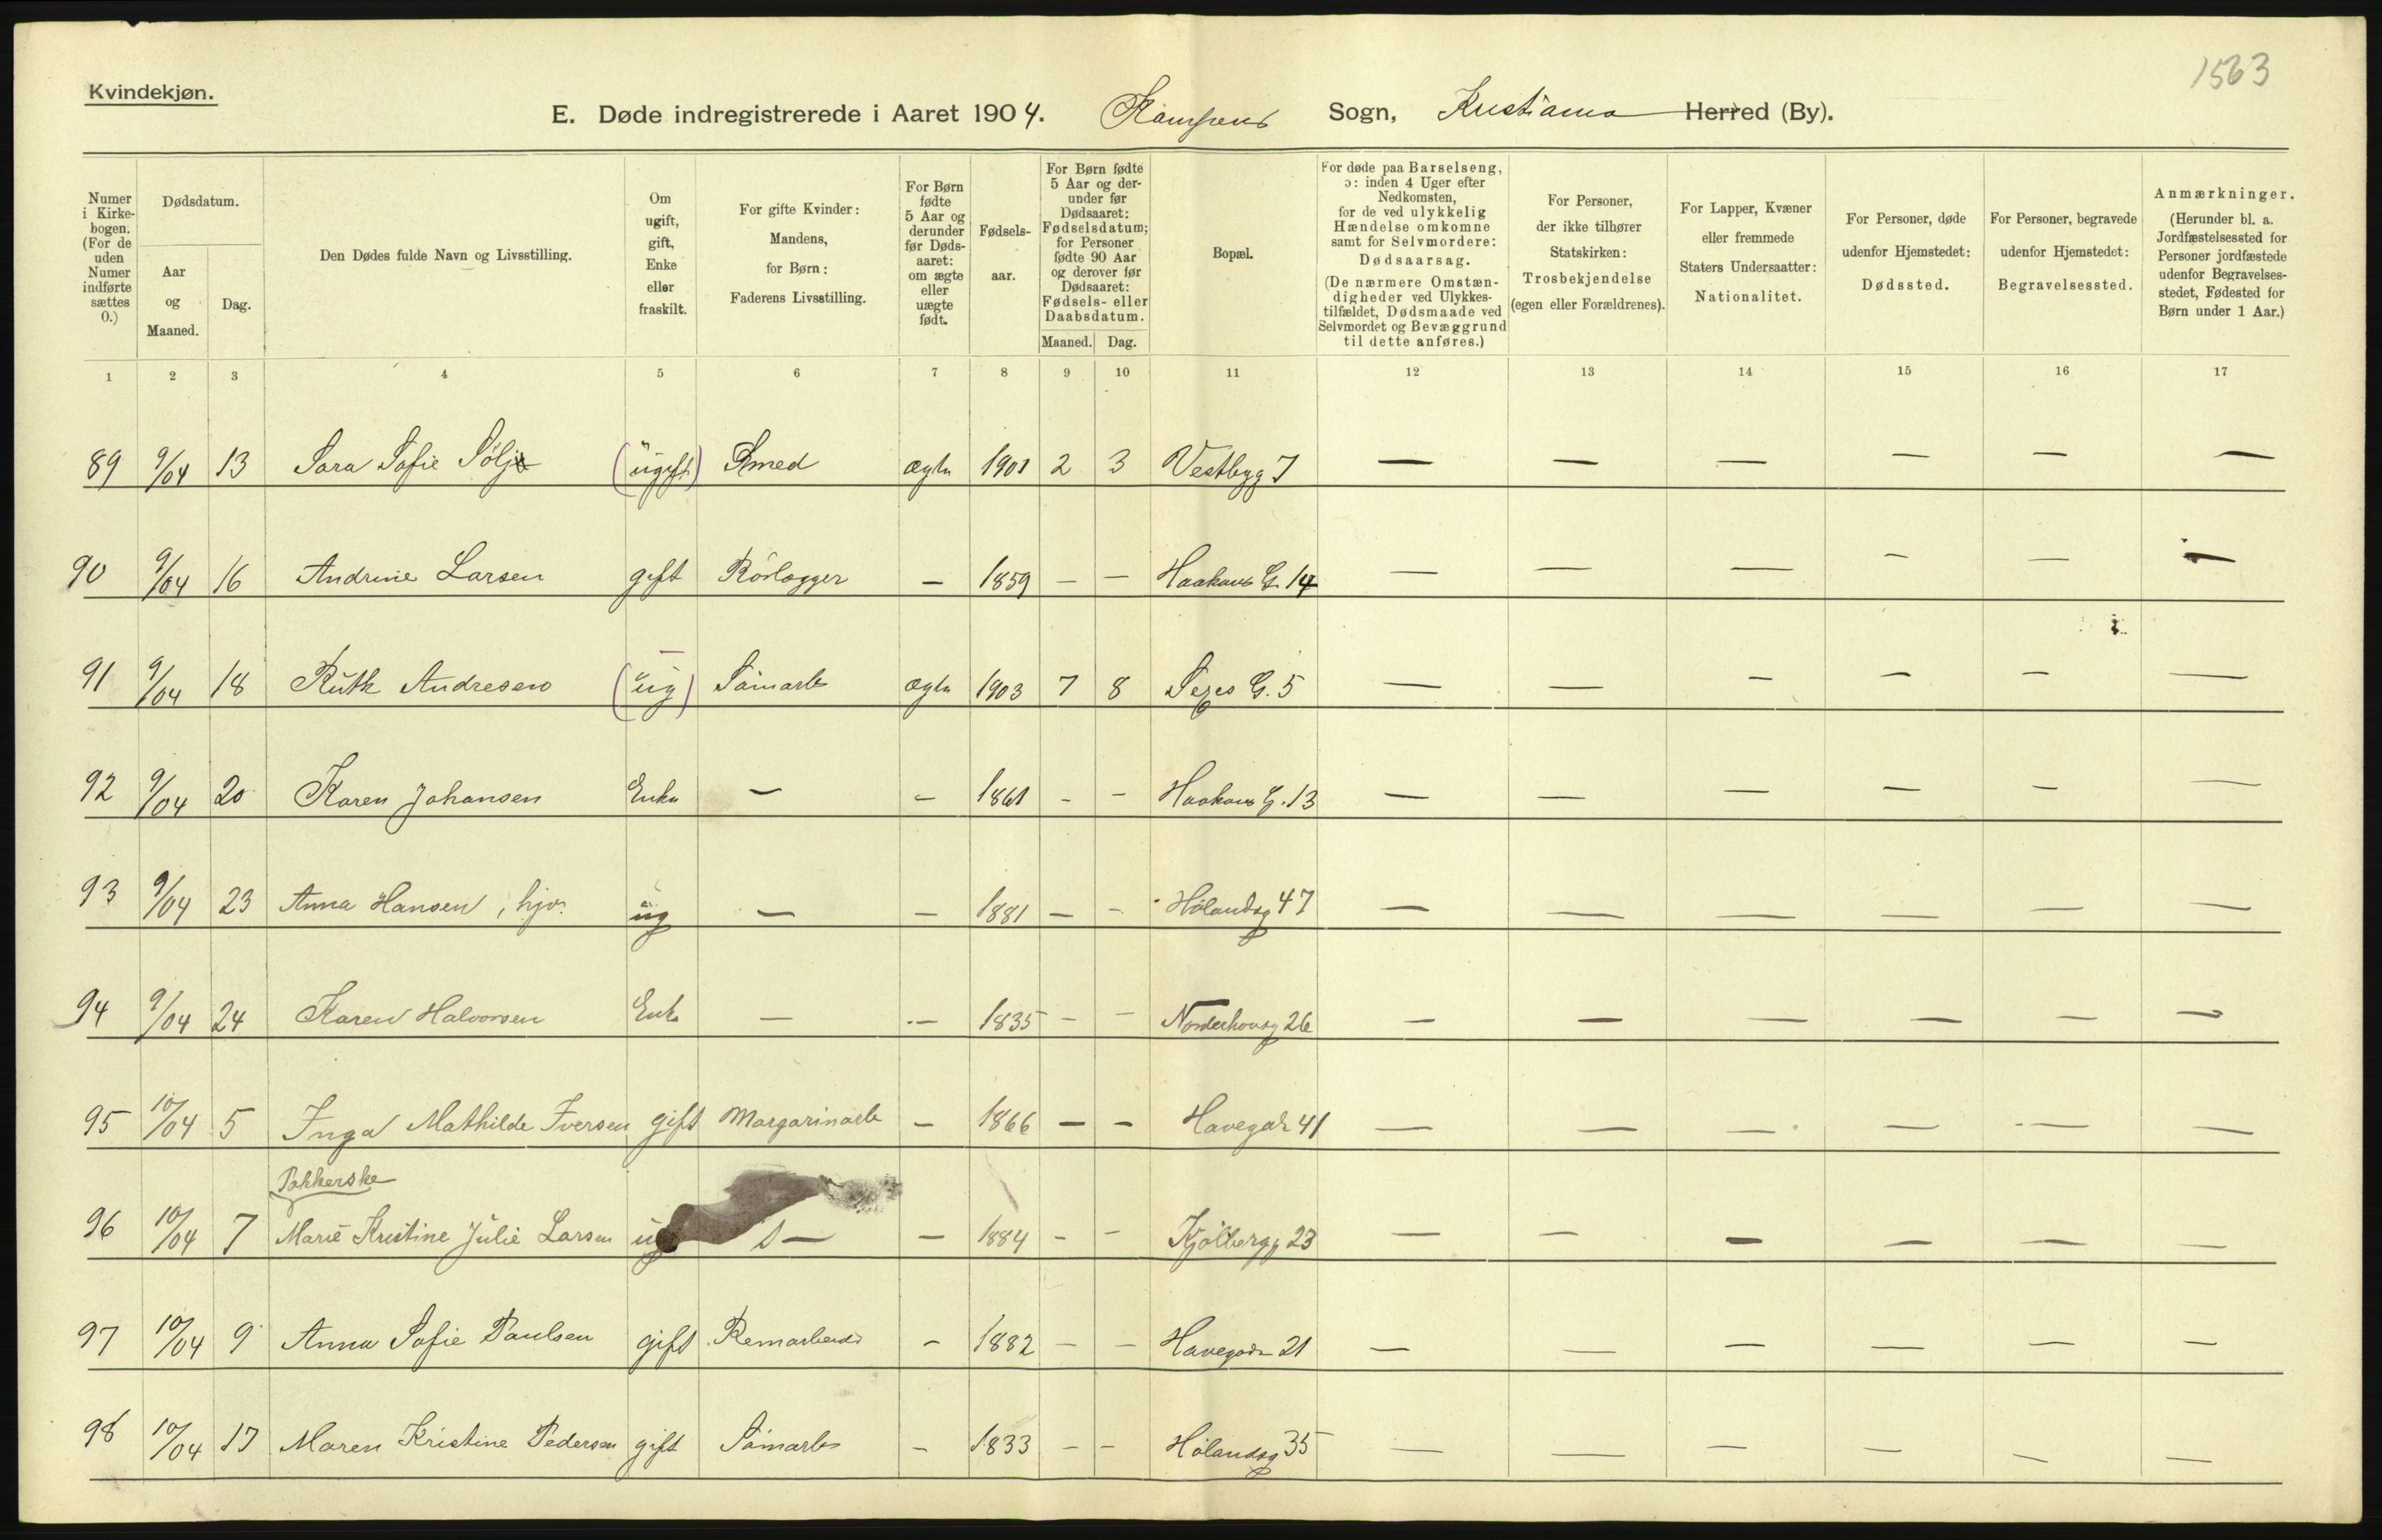 1563
Kvindekjøn.
E. Døde indregistrerede i Aaret 1904. Kampens Sogn, Kristiania Herred (By).
Numer i Kirkebogen. (For de uden Numer indførte sættes 0.)
Dødsdatum.
Aar og Maaned.
Dag.
Den Dødes fulde Navn og Livsstilling.
Om ugift, gift, Enke eller fraskilt.
For gifte Kvinder: Mandens, for Børn: Faderens Livsstilling.
For Børn fødte 5 Aar og derunder før Dødsaaret: om ægte eller uægte født.
Fødselsaar.
For Børn fødte 5 Aar og derunder før Dødsaaret: Fødselsdatum; for Personer fødte 90 Aar og derover før Dødsaaret: Fødsels- eller Daabsdatum.
Maaned. Dag.
Bopæl.
For døde paa Barselseng, ɔ: inden 4 Uger efter Nedkomsten, for de ved ulykkelig Hændelse omkomne samt for Selvmordere: Dødsaarsag. (De nærmere Omstændigheder ved Ulykkestilfældet, Dødsmaade ved Selvmordet og Bevæggrund til dette anføres.)
For Personer, der ikke tilhører Statskirken: Trosbekjendelse (egen eller Forældrenes).
For Lapper, Kvæner eller fremmede Staters Undersaatter: Nationalitet.
For Personer, døde udenfor Hjemstedet: Dødssted.
For Personer, begravede udenfor Hjemstedet: Begravelsessted.
Anmærkninger. (Herunder bl. a. Jordfæstelsessted for Personer jordfæstede udenfor Begravelsesstedet, Fødested for Børn under 1 Aar.)
1 2 3 4 5 6 7 8 9 10 11 12 13 14 15 16 17
89 9/04 13 Sara Sofie Sølje (ugift) Smed ægte 1901 2 3 Vestbyg 7 — — — — — —
90 9/04 16 Andrine Larsen gift Rörlægger — 1859 — — Haakons G. 14 — — — — — —
91 9/04 18 Ruth Andresen (ug) ægte 1903 7 8 5 — — — — — —
92 9/04 20 Karen Johansen Enke — — 1861 - - Haakons G. 13 — — — — — —
93 9/04 23 Anna Hansen, hjv. ug — — 1881 — - Hölandsg 47 — — — — — —
94 9/04 24 Karen Halvorsen Enke — — 1835 - - Norderhovsg 26 — — — — — —
95 10/04 5 Inga Mathilde Iversen gift Margarinarb — 1866 — - Havegade 41 — — — — — —
Pakkerske
96 10/04 7 Marie Kristine Julie Larsen ug — — 1884 - - Kjölbergg 23 — — — — — —
97 10/04 9 Anna Sofie Paulsen gift Remarbeid - 1882 — — Havegade 21 — — — — — —
98 10/04 17 Maren Kristine Pedersen gift - 1833 - - Hölandsg 35 — — — — — —